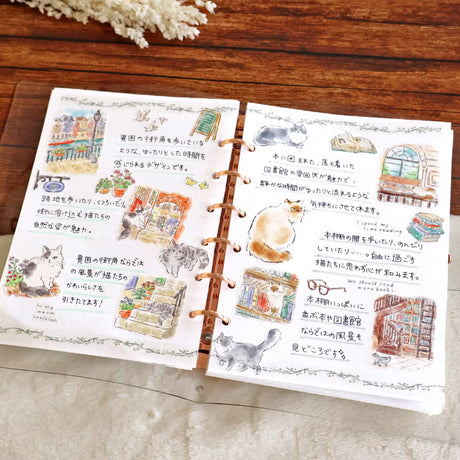 異国の街角を歩いている
ような、ゆったりとした時間を
感じられるデザインです。
路地を歩いたり、くつろいだり。
街に溶け込む猫たちの
自然な姿が魅力。
異国の街角ならでは
の風景が猫たちの
かわいらしさを
引きたてます!
本に囲まれた、落ち着いた
図書館の雰囲気が魅力で、
静かな時間がゆったりと流れるような
気持ちにさせてくれます。
I spend my
time reading.
本棚の間を歩いたり、のんびり
していたり……自由に過ごす
猫たちに思わず心が和みます。
We should read
more books.
本棚いっぱいに
並ぶ本や図書館
ならではの風景も
見どころです。